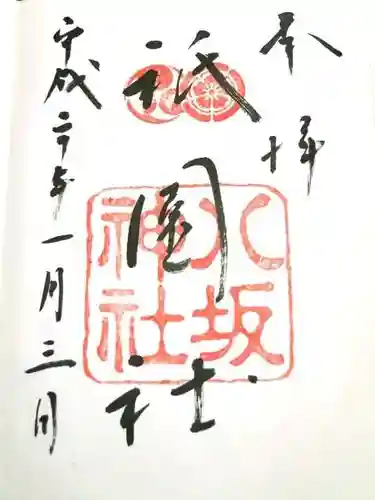 奉拝
祇園社
八坂神社
平成二十年一月三日